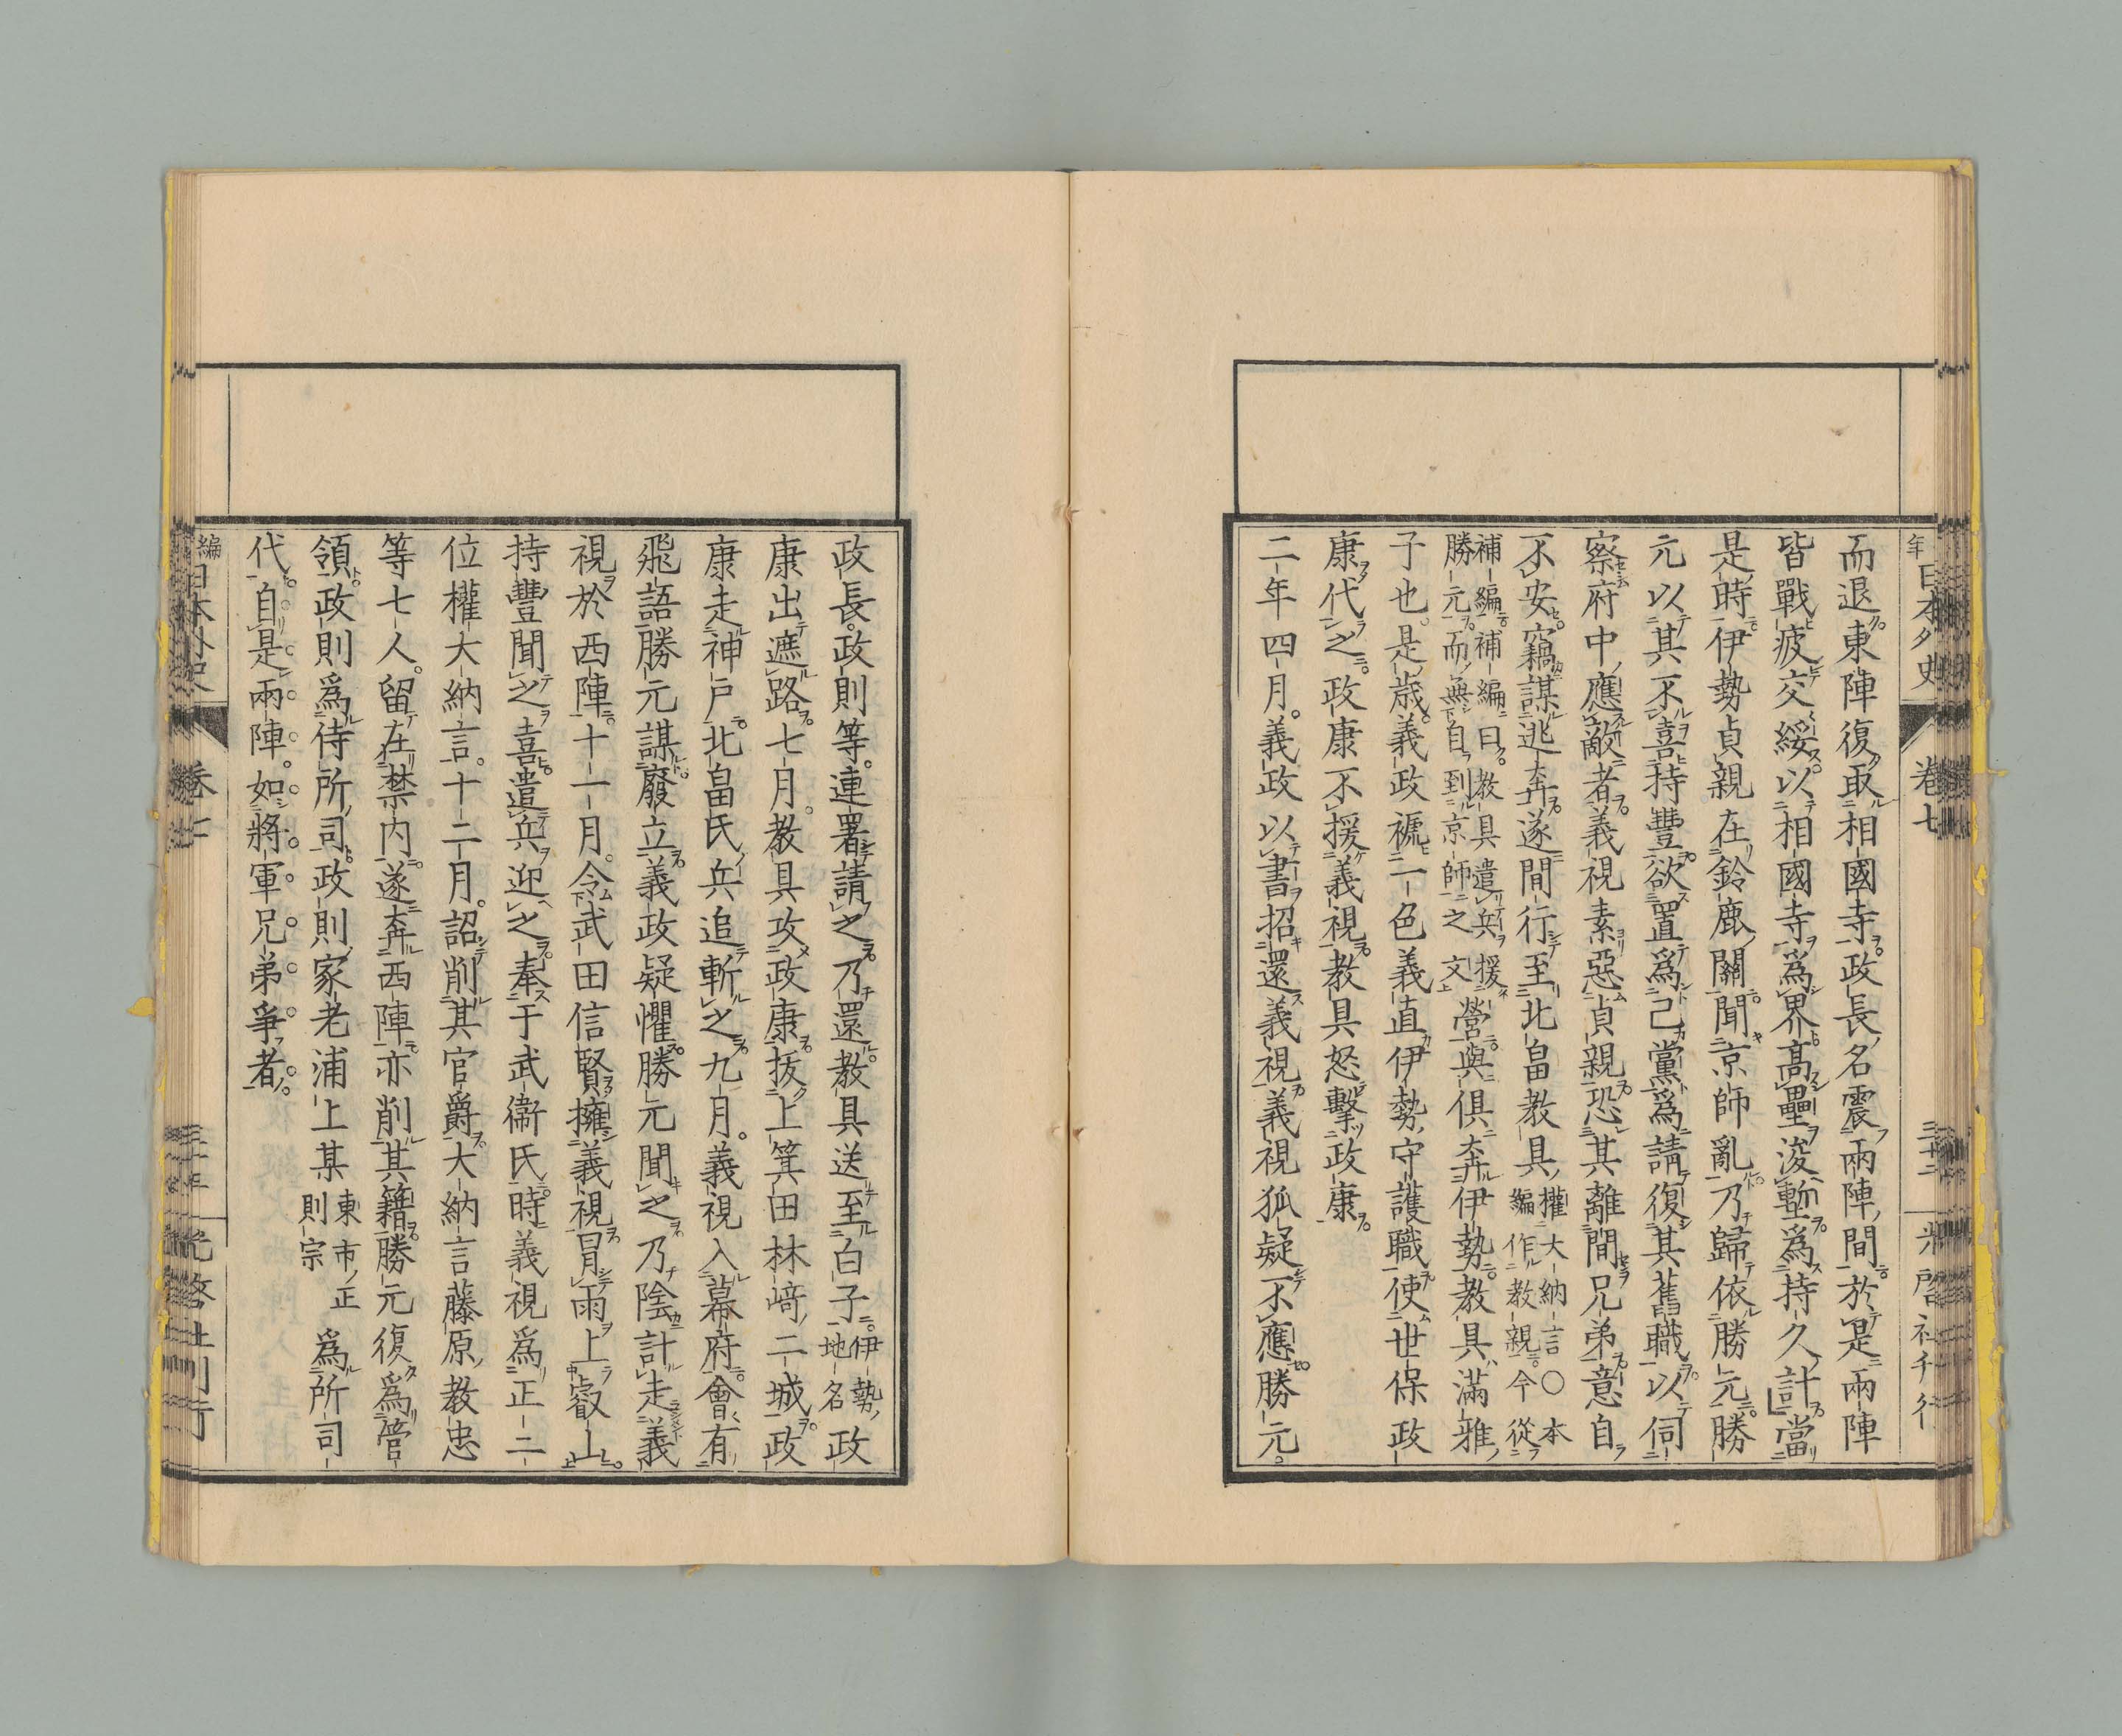 日本外史 卷七
而退。東陣復取相國寺。政長名震兩陣間。於是兩陣
皆戰疲交綏。以相國寺爲界。高壘浚塹。爲持久計。當
是時。伊勢貞親在鈴鹿關。聞京師亂。乃歸依勝元。勝
元以其不喜持豐。欲置爲己黨。爲請復其舊職。以伺
察府中應敵者。義視素惡貞親。恐其離間兄弟。意自
不安。竊謀逃奔。遂間行至北畠教具。權大納言〇本編作教親今從
補編。補編曰。教具遣兵援勝元。而無自到京師之文 營與俱奔伊勢。教具滿雅
子也。是歲。義政褫一色義直伊勢守護職。使世保政
康代之。政康不援義視。教具怒擊政康。
二年四月。義政以書招還義視。義視狐疑不應。勝元。
政長。政則等。連署請之。乃還。教具送至白子。伊勢地名 政
康出遮路。七月。教具攻政康。拔上箕田林﨑二城。政
康走神戶。北畠氏兵追斬之。九月。義視入幕府。會有
飛語勝元謀廢立。義政疑懼勝元聞之。乃陰計走義
視於西陣。十一月。令武田信賢擁義視冒雨上叡山。
持豐聞之喜。遣兵迎之。奉于武衞氏。時義視爲正二
位權大納言。十二月。詔削其官爵。大納言藤原教忠
等七人。留在禁內。遂奔西陣。亦削其籍。勝元復爲管
領。政則爲侍所司。政則家老浦上某 東市正則宗 爲所司
代。自是兩陣。如將軍兄弟爭者。
編日本外史